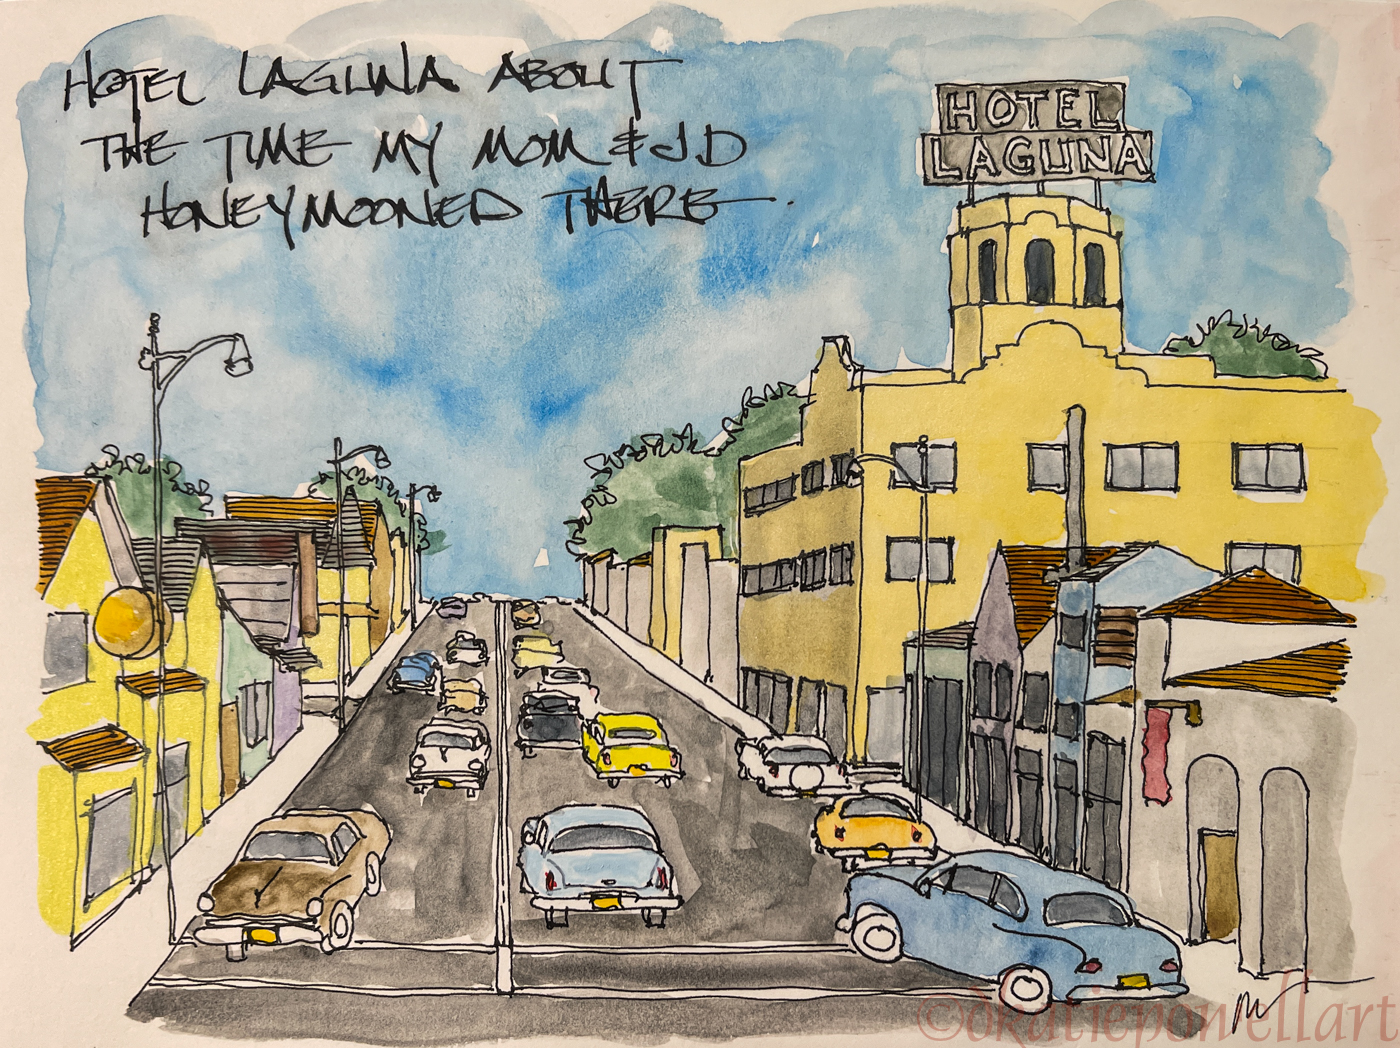 HOTEL LAGUNA ABOUT
THE TIME MY MOM & JD
HONEYMOONED THERE.
HOTEL
LAGUNA
©@katiepowellart